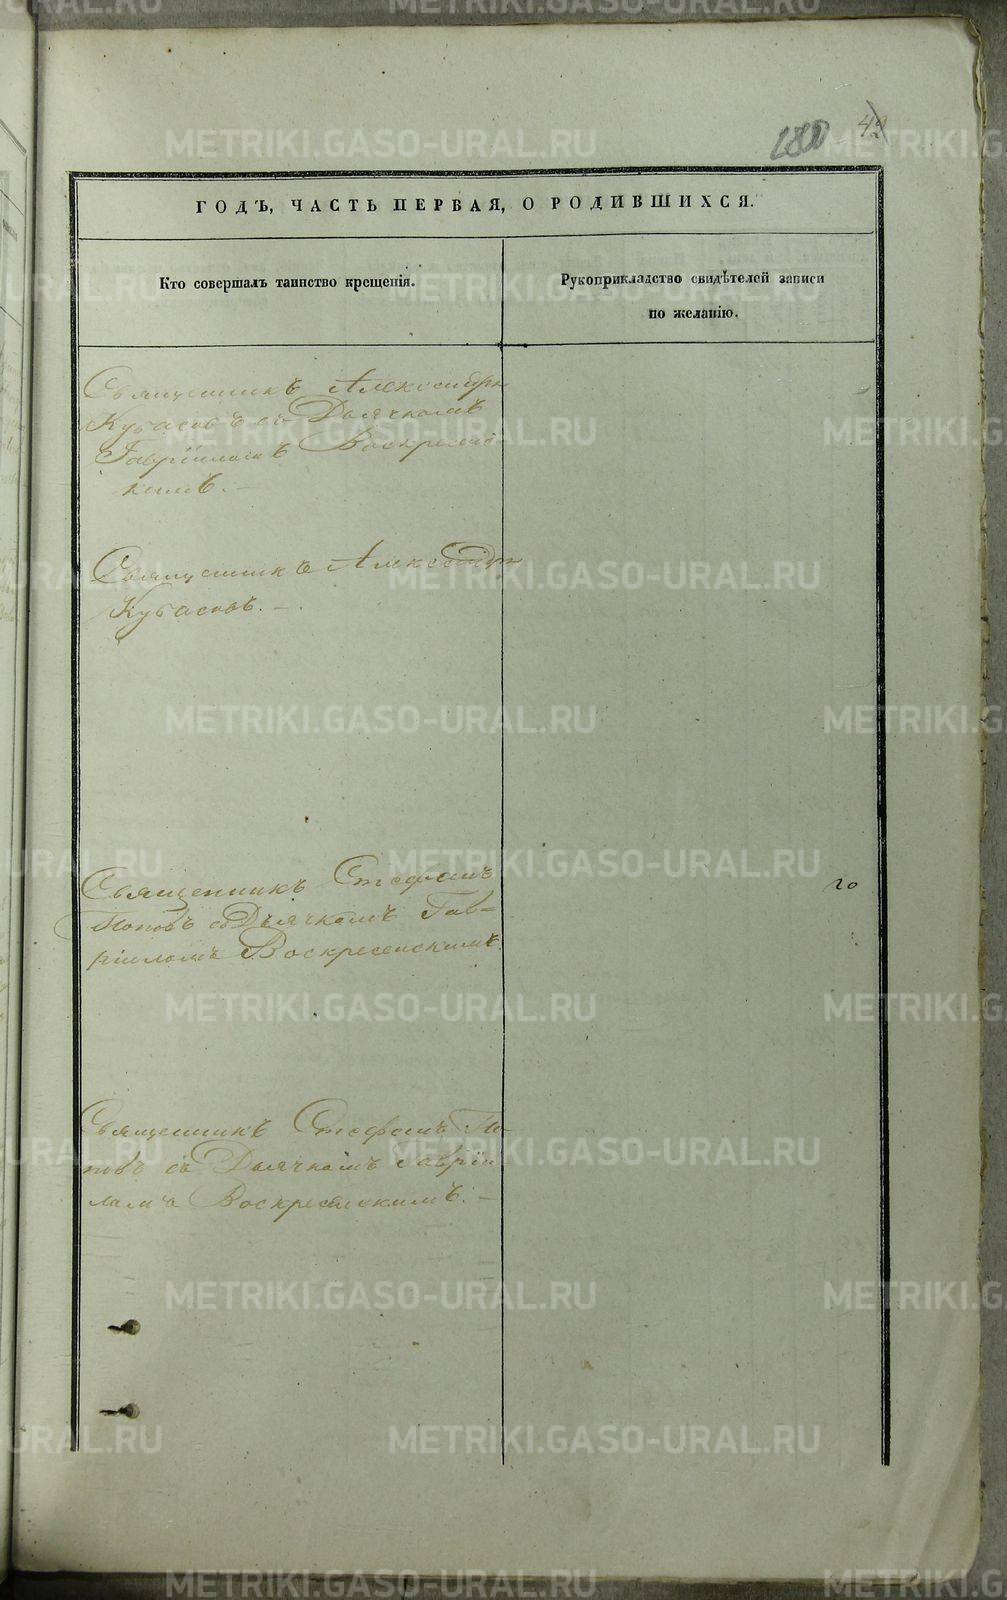 42
ГОДЪ, ЧАСТЬ ПЕРВАЯ, О РОДИВШИХСЯ.
Кто совершалъ таинство крещенія.
Рукоприкладство свидѣтелей записи
по желанію.
Священникъ Александръ
Кубасовъ съ Дьячкомъ
Гавріиломъ Воскресенс-
кимъ. —
Священникъ Александръ
Кубасовъ. —
Священникъ Стефанъ
Поповъ съ Дьячкомъ Гав-
ріиломъ Воскресенскимъ.
20
Священникъ Стефанъ По-
повъ съ Дьячкомъ Гаврiи-
ломъ Воскресенскимъ. —
METRIKI.GASO-URAL.RU